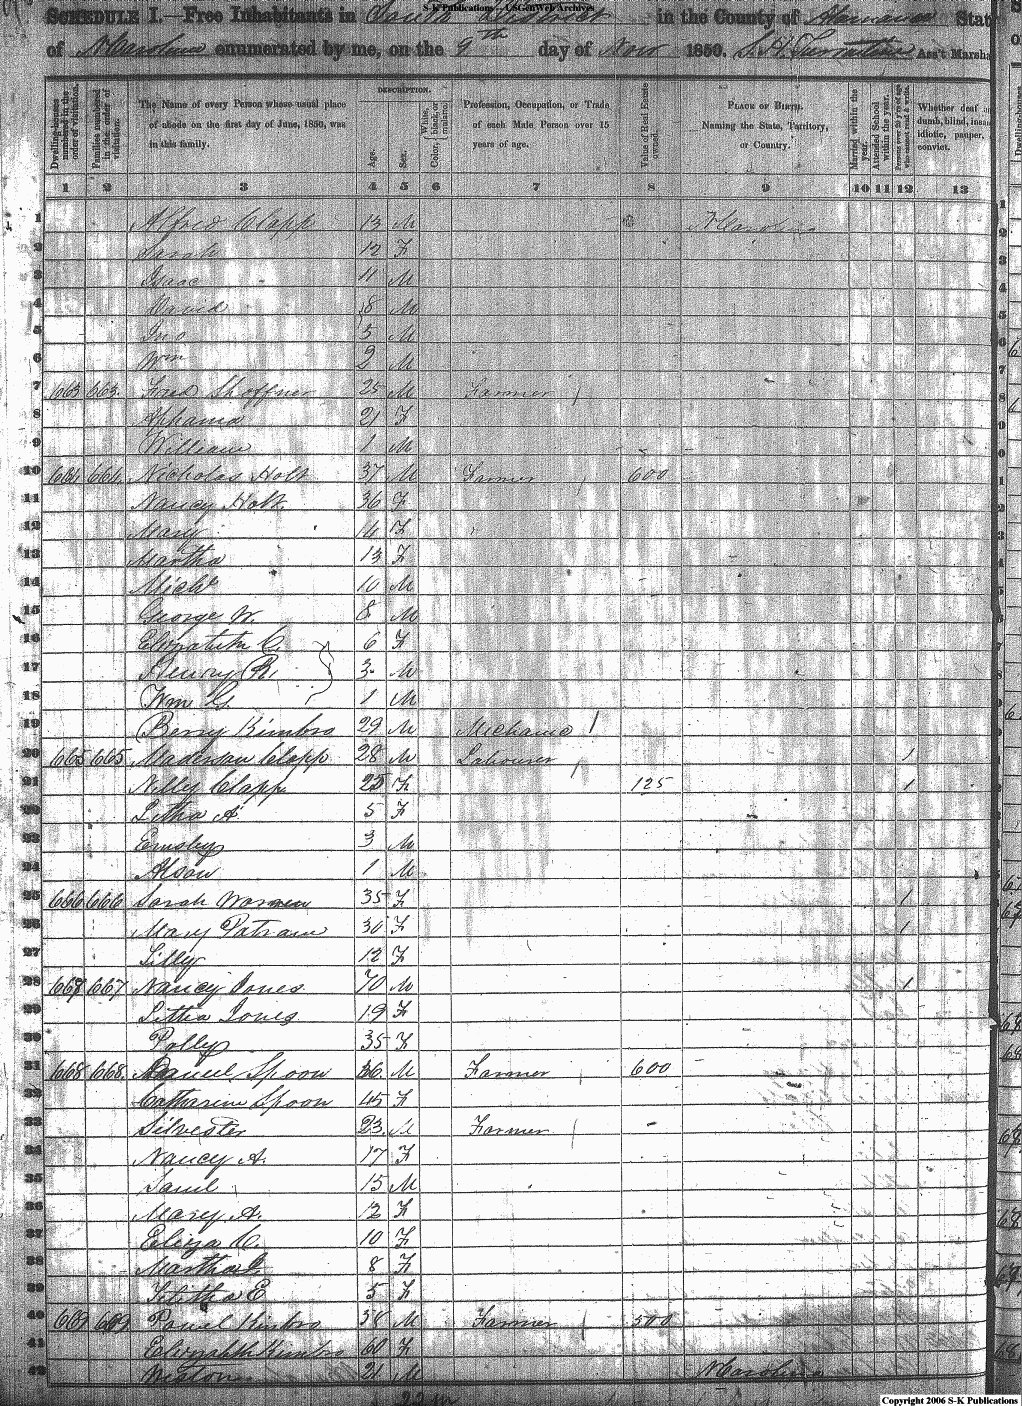 S-K Publications - USGenWeb Archives
SCHEDULE I.—Free Inhabitants in South District in the County of Alamance State
of N Carolina enumerated by me, on the 9th day of Nov 1850. Ass't Marsha
Dwelling-houses numbered in the order of visitation.
Families numbered in the order of visitation.
The Name of every Person whose usual place of abode on the first day of June, 1850, was in this family.
DESCRIPTION.
Age.
Sex.
Color, White, black, or mulatto.
Profession, Occupation, or Trade of each Male Person over 15 years of age.
Value of Real Estate owned.
PLACE OF BIRTH. Naming the State, Territory, or Country.
Married within the year.
Attended School within the year.
Persons over 20 y'rs of age who cannot read & write.
Whether deaf and dumb, blind, insane, idiotic, pauper, or convict.
1 2 3 4 5 6 7 8 9 10 11 12 13
1 Alfred Clapp 13 M N Carolina
2 Sarah 12 F
3 Isaac 11 M
4 David 8 M
5 Jno 5 M
6 Wm 2 M
7 663 663. Fred Shoffner 25 M Farmer
8 21 F
9 William 1 M
10 664 664. Nicholas Holt 37 M Farmer 600
11 Nancy Holt 36 F
12 Mary 14 F
13 Martha 13 F
14 Michl 10 M
15 George W. 8 M
16 Elizabeth C. 6 F
17 Henry R. 3 M
18 Wm G. 1 M
19 Berry Kimbro 29 M Mechanic
20 665 665 Madison Clapp 28 M Labourer 1
21 Nelly Clapp 25 F 125 1
22 Litha A 5 F
23 Emsley 3 M
24 Alson 1 M
25 666 666 Sarah Warren 35 F 1
26 Mary Patram 36 F 1
27 Lilly 12 F
28 667 667 Nancy Jones 70 M 1
29 Litha Jones 19 F
30 Polly 35 F
31 668 668. Daniel Spoon 46. M Farmer 600
32 Catharine Spoon 45 F
33 Silvester 23 M Farmer
34 Nancy A. 17 F
35 Saml 15 M
36 Mary A. 12 F
37 Eliza C. 10 F
38 Martha J. 8 F
39 Litha E 5 F
40 669 669 Kimbro 38 M Farmer 500
41 Elizabeth Kimbro 60 F
42 21 M N Carolina
22 m
Copyright 2006 S-K Publications